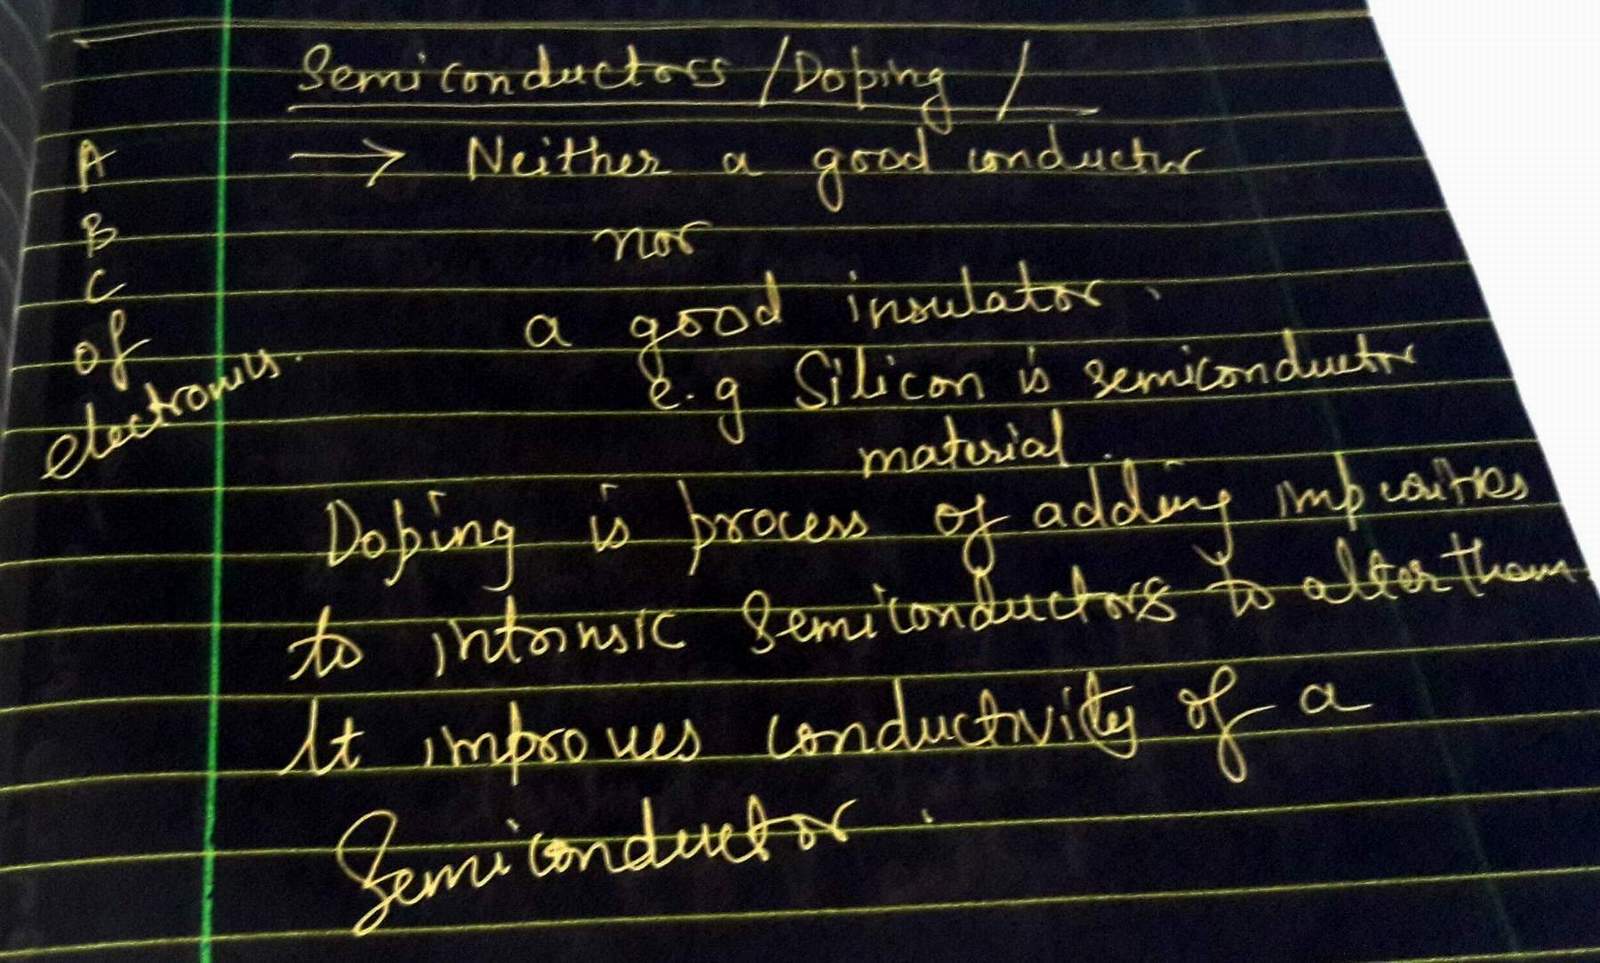 Semiconductors / Doping /
A
B
C
of
electronics.
→ Neither a good conductor
nor
a good insulator.
e.g Silicon is semiconductor
material.
Doping is process of adding impurities
to intrinsic semiconductors to alter them.
It improves conductivity of a
Semiconductor.